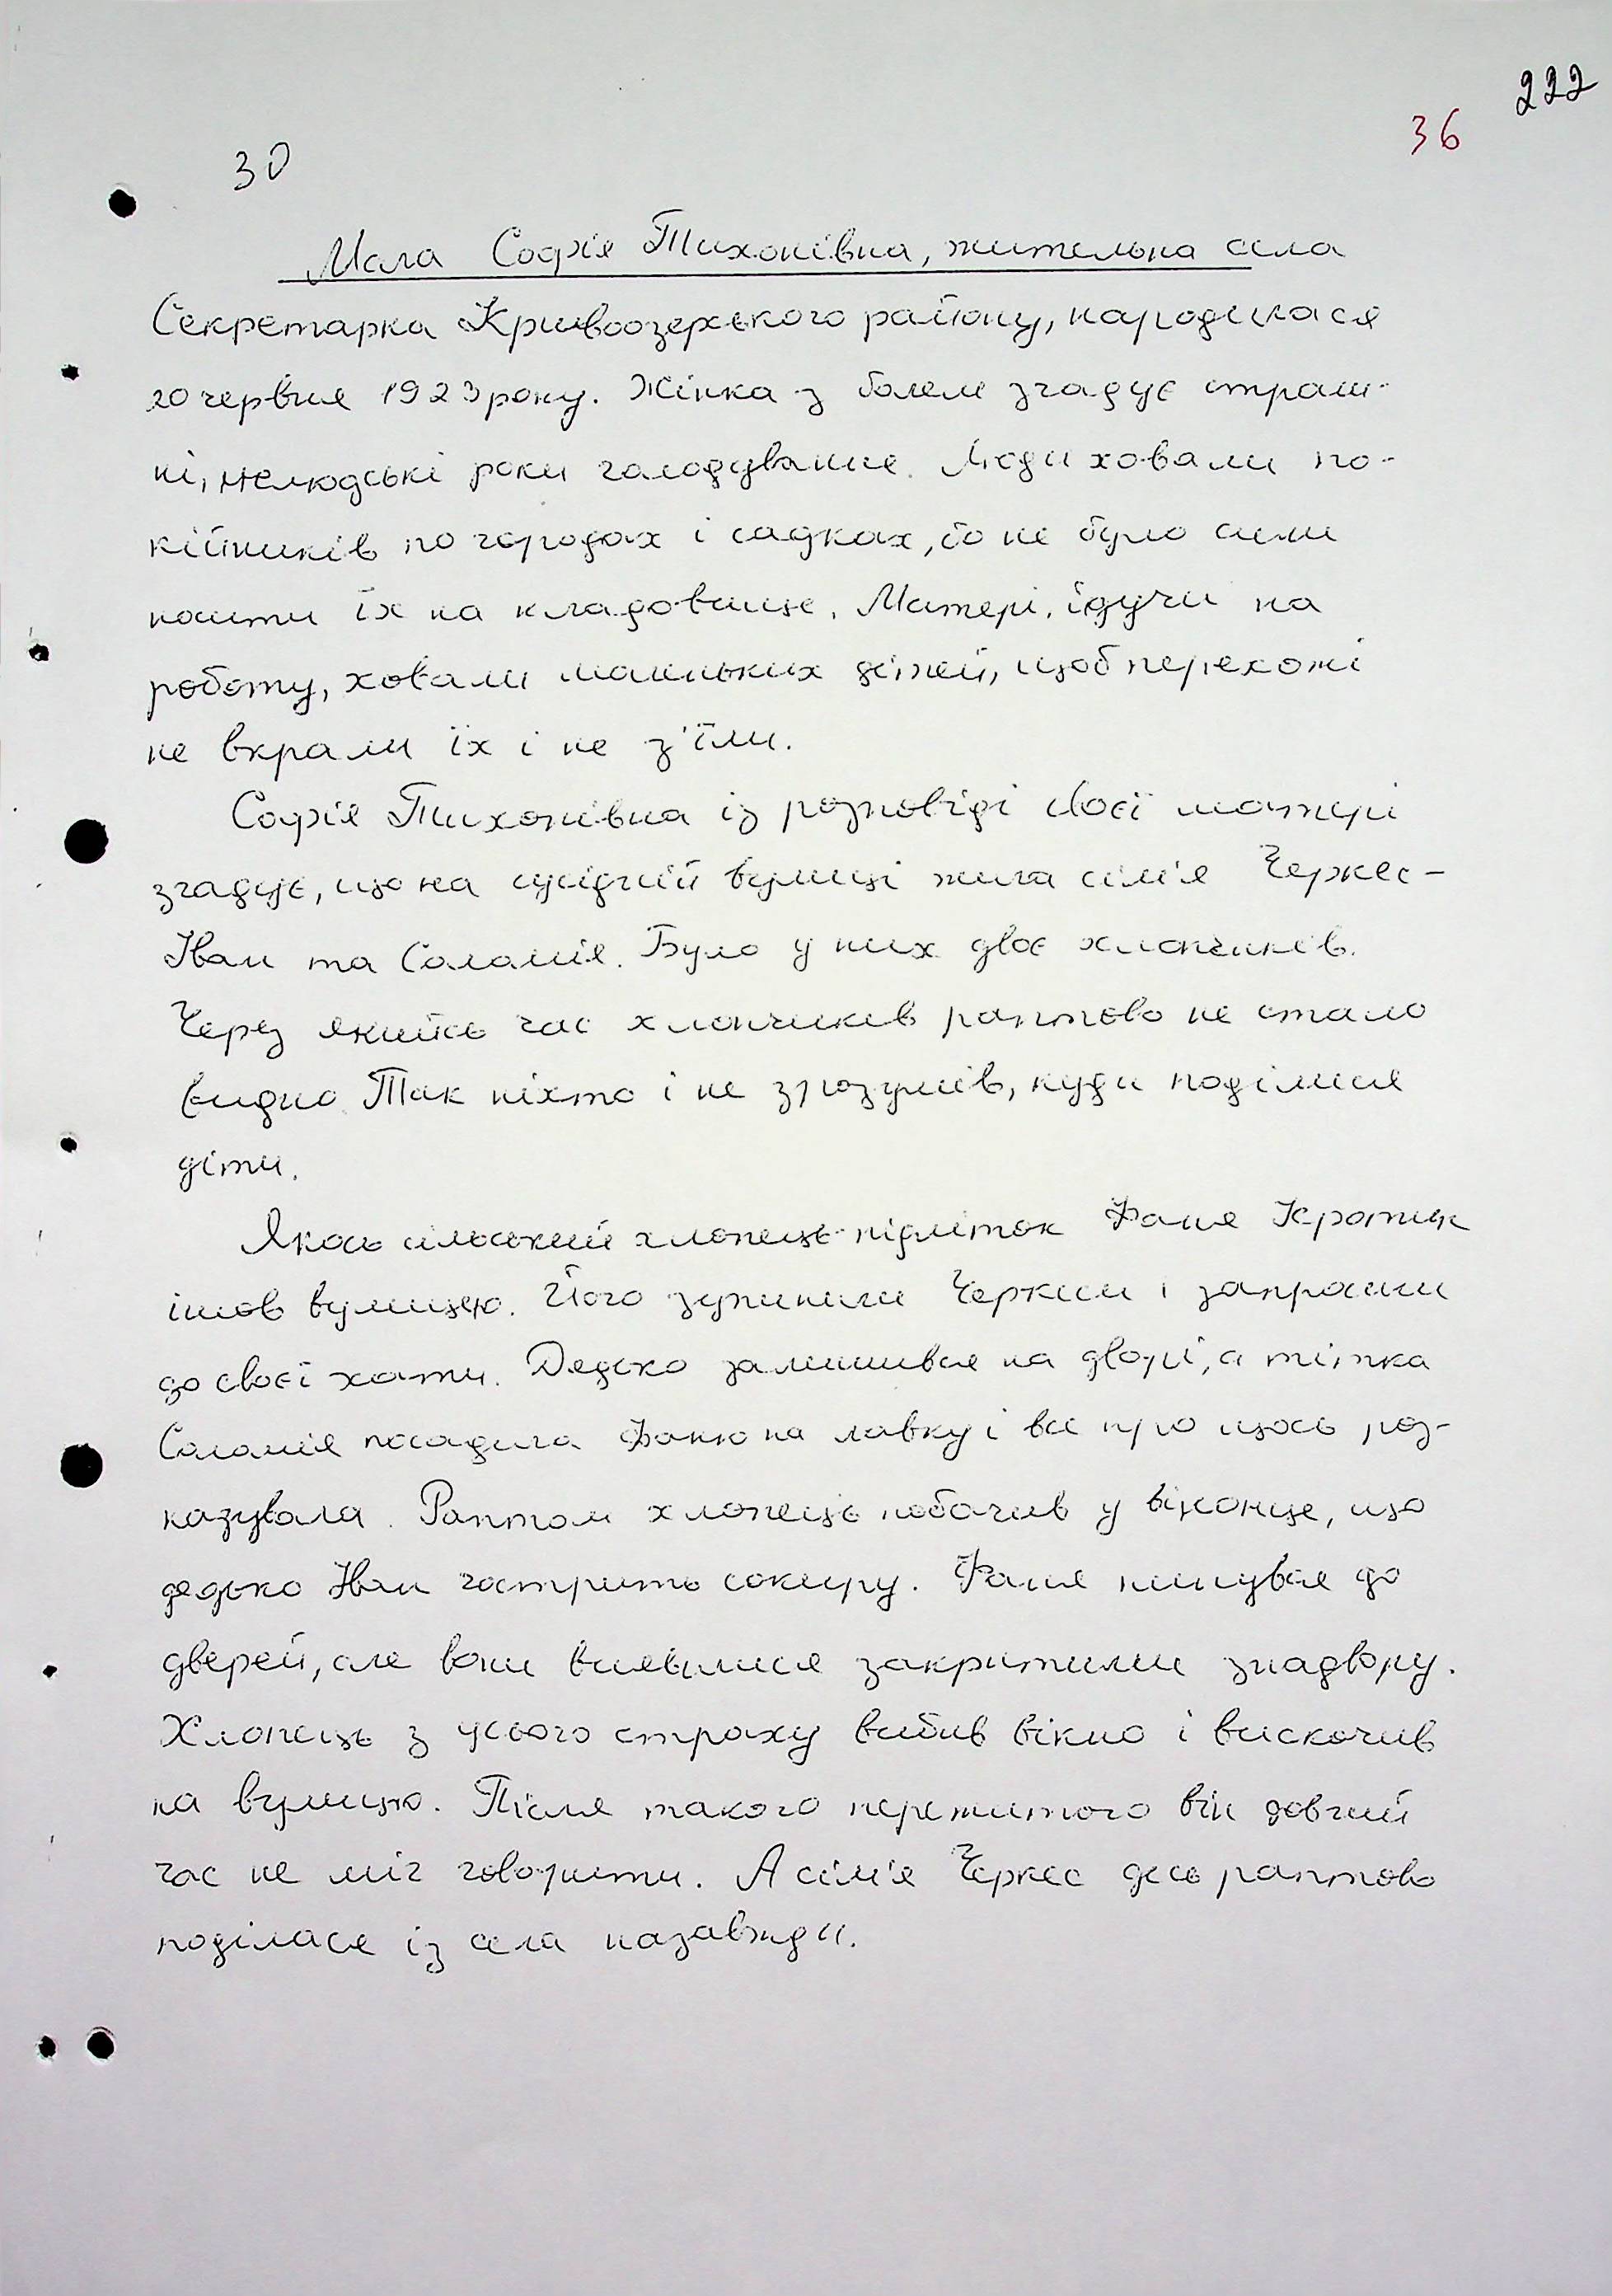 222
36
30
Мала Софія Тихонівна, жителька села
Секретарка Кривоозерського району, народилася
20 червня 1923 року. Жінка з болем згадує страш-
ні, нелюдські роки голодування. Люди ховали по-
кійників по городах і садках, бо не було сили
носити їх на кладовище. Матері, ідучи на
роботу, ховали маленьких дітей, щоб перехожі
не вкрали їх і не з'їли.
Софія Тихонівна із розповіді своєї матері
згадує, що на сусідній вулиці жила сім'я Черкес-
Іван та Саламія. Було у них двоє хлопчиків.
Через якийсь час хлопчиків раптово не стало
видно. Так ніхто і не зрозумів, куди поділися
діти.
Якось сільський хлопець-підліток Фаня Кротик
ішов вулицею. Його зупинили Черкеси і запросили
до своєї хати. Дядько залишився на дворі, а тітка
Саламія посадила Фаню на лавку і все про щось роз-
казувала. Раптом хлопець побачив у віконце, що
дядько Іван гострить сокиру. Фаня кинувся до
дверей, але вони виявилися закритими знадвору.
Хлопець з усього страху вибив вікно і вискочив
на вулицю. Після такого пережитого він довгий
час не міг говорити. А сім'я Черкес десь раптово
поділася із села назавжди.